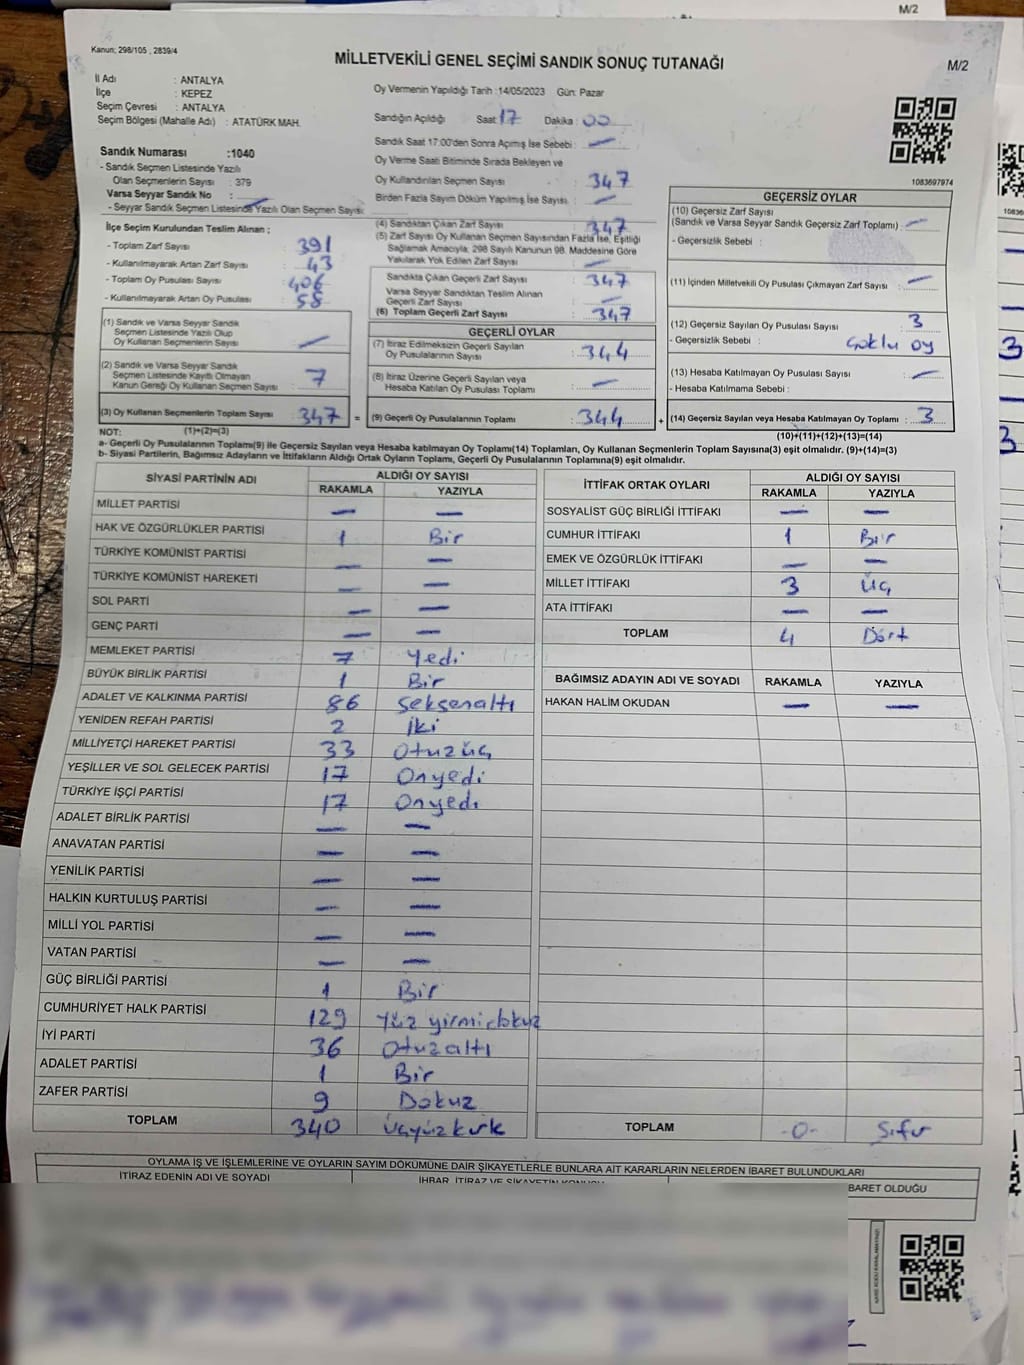 M/2
Kanun; 298/105 , 2839/4
MİLLETVEKİLİ GENEL SEÇİMİ SANDIK SONUÇ TUTANAĞI
M/2
İl Adı : ANTALYA
İlçe : KEPEZ
Seçim Çevresi : ANTALYA
Seçim Bölgesi (Mahalle Adı) : ATATÜRK MAH.
Oy Vermenin Yapıldığı Tarih :14/05/2023 Gün: Pazar
Sandığın Açıldığı Saat 17 Dakika 00
Sandık Saat 17:00'den Sonra Açımış İse Sebebi : —
Oy Verme Saati Bitiminde Sırada Bekleyen ve
Oy Kullandırılan Seçmen Sayısı : 347
Birden Fazla Sayım Döküm Yapılmış İse Sayısı : —
Sandık Numarası :1040
- Sandık Seçmen Listesinde Yazılı
Olan Seçmenlerin Sayısı : 379
Varsa Seyyar Sandık No : —
- Seyyar Sandık Seçmen Listesinde Yazılı Olan Seçmen Sayısı:
1083697974
İlçe Seçim Kurulundan Teslim Alınan ;
- Toplam Zarf Sayısı : 391
- Kullanılmayarak Artan Zarf Sayısı : 43
- Toplam Oy Pusulası Sayısı : 406
- Kullanılmayarak Artan Oy Pusulası : 58
(1) Sandık ve Varsa Seyyar Sandık
Seçmen Listesinde Yazılı Olup
Oy Kullanan Seçmenlerin Sayısı : —
(2) Sandık ve Varsa Seyyar Sandık
Seçmen Listesinde Kayıtlı Olmayan
Kanun Gereği Oy Kullanan Seçmen Sayısı : 7
(3) Oy Kullanan Seçmenlerin Toplam Sayısı : 347 =
(4) Sandıktan Çıkan Zarf Sayısı : 347
(5) Zarf Sayısı Oy Kullanan Seçmen Sayısından Fazla İse, Eşitliği
Sağlamak Amacıyla, 298 Sayılı Kanunun 98. Maddesine Göre
Yakılarak Yok Edilen Zarf Sayısı : —
Sandıkta Çıkan Geçerli Zarf Sayısı : 347
Varsa Seyyar Sandıktan Teslim Alınan
Geçerli Zarf Sayısı : —
(6) Toplam Geçerli Zarf Sayısı : 347
GEÇERLİ OYLAR
(7) İtiraz Edilmeksizin Geçerli Sayılan
Oy Pusulalarının Sayısı : 344
(8) İtiraz Üzerine Geçerli Sayılan veya
Hesaba Katılan Oy Pusulası Toplamı : —
(9) Geçerli Oy Pusulalarının Toplamı : 344 +
GEÇERSİZ OYLAR
(10) Geçersiz Zarf Sayısı
(Sandık ve Varsa Seyyar Sandık Geçersiz Zarf Toplamı) : —
- Geçersizlik Sebebi :
(11) İçinden Milletvekili Oy Pusulası Çıkmayan Zarf Sayısı : —
(12) Geçersiz Sayılan Oy Pusulası Sayısı : 3
- Geçersizlik Sebebi : Çoklu oy
(13) Hesaba Katılmayan Oy Pusulası Sayısı : —
- Hesaba Katılmama Sebebi :
(14) Geçersiz Sayılan veya Hesaba Katılmayan Oy Toplamı : 3
NOT: (1)+(2)=(3)
(10)+(11)+(12)+(13)=(14)
a- Geçerli Oy Pusulasının Toplamı(9) ile Geçersiz Sayılan veya Hesaba katılmayan Oy Toplamı(14) Toplamları, Oy Kullanan Seçmenlerin Toplam Sayısına(3) eşit olmalıdır. (9)+(14)=(3)
b- Siyasi Partilerin, Bağımsız Adayların ve İttifakların Aldığı Ortak Oyların Toplamı, Geçerli Oy Pusulalarının Toplamına(9) eşit olmalıdır.
SİYASİ PARTİNİN ADI ALDIĞI OY SAYISI
RAKAMLA YAZIYLA
MİLLET PARTİSİ — —
HAK VE ÖZGÜRLÜKLER PARTİSİ 1 Bir
TÜRKİYE KOMÜNİST PARTİSİ — —
TÜRKİYE KOMÜNİST HAREKETİ — —
SOL PARTİ — —
GENÇ PARTİ — —
MEMLEKET PARTİSİ 7 Yedi
BÜYÜK BİRLİK PARTİSİ 1 Bir
ADALET VE KALKINMA PARTİSİ 86 Seksenaltı
YENİDEN REFAH PARTİSİ 2 İki
MİLLİYETÇİ HAREKET PARTİSİ 33 Otuzüç
YEŞİLLER VE SOL GELECEK PARTİSİ 17 Onyedi
TÜRKİYE İŞÇİ PARTİSİ 17 Onyedi
ADALET BİRLİK PARTİSİ — —
ANAVATAN PARTİSİ — —
YENİLİK PARTİSİ — —
HALKIN KURTULUŞ PARTİSİ — —
MİLLİ YOL PARTİSİ — —
VATAN PARTİSİ — —
GÜÇ BİRLİĞİ PARTİSİ 1 Bir
CUMHURİYET HALK PARTİSİ 129 Yüz yirmidokuz
İYİ PARTİ 36 Otuzaltı
ADALET PARTİSİ 1 Bir
ZAFER PARTİSİ 9 Dokuz
TOPLAM 340 Üçyüzkırk
İTTİFAK ORTAK OYLARI ALDIĞI OY SAYISI
RAKAMLA YAZIYLA
SOSYALİST GÜÇ BİRLİĞİ İTTİFAKI — —
CUMHUR İTTİFAKI 1 Bir
EMEK VE ÖZGÜRLÜK İTTİFAKI — —
MİLLET İTTİFAKI 3 Üç
ATA İTTİFAKI — —
TOPLAM 4 Dört
BAĞIMSIZ ADAYIN ADI VE SOYADI RAKAMLA YAZIYLA
HAKAN HALİM OKUDAN — —
TOPLAM -0- Sıfır
OYLAMA İŞ VE İŞLEMLERİNE VE OYLARIN SAYIM DÖKÜMÜNE DAİR ŞİKAYETLERLE BUNLARA AİT KARARLARIN NELERDEN İBARET BULUNDUKLARI
İTİRAZ EDENİN ADI VE SOYADI
İHBAR, İTİRAZ VE ŞİKAYETİN KONUSU
BARET OLDUĞU
3
3